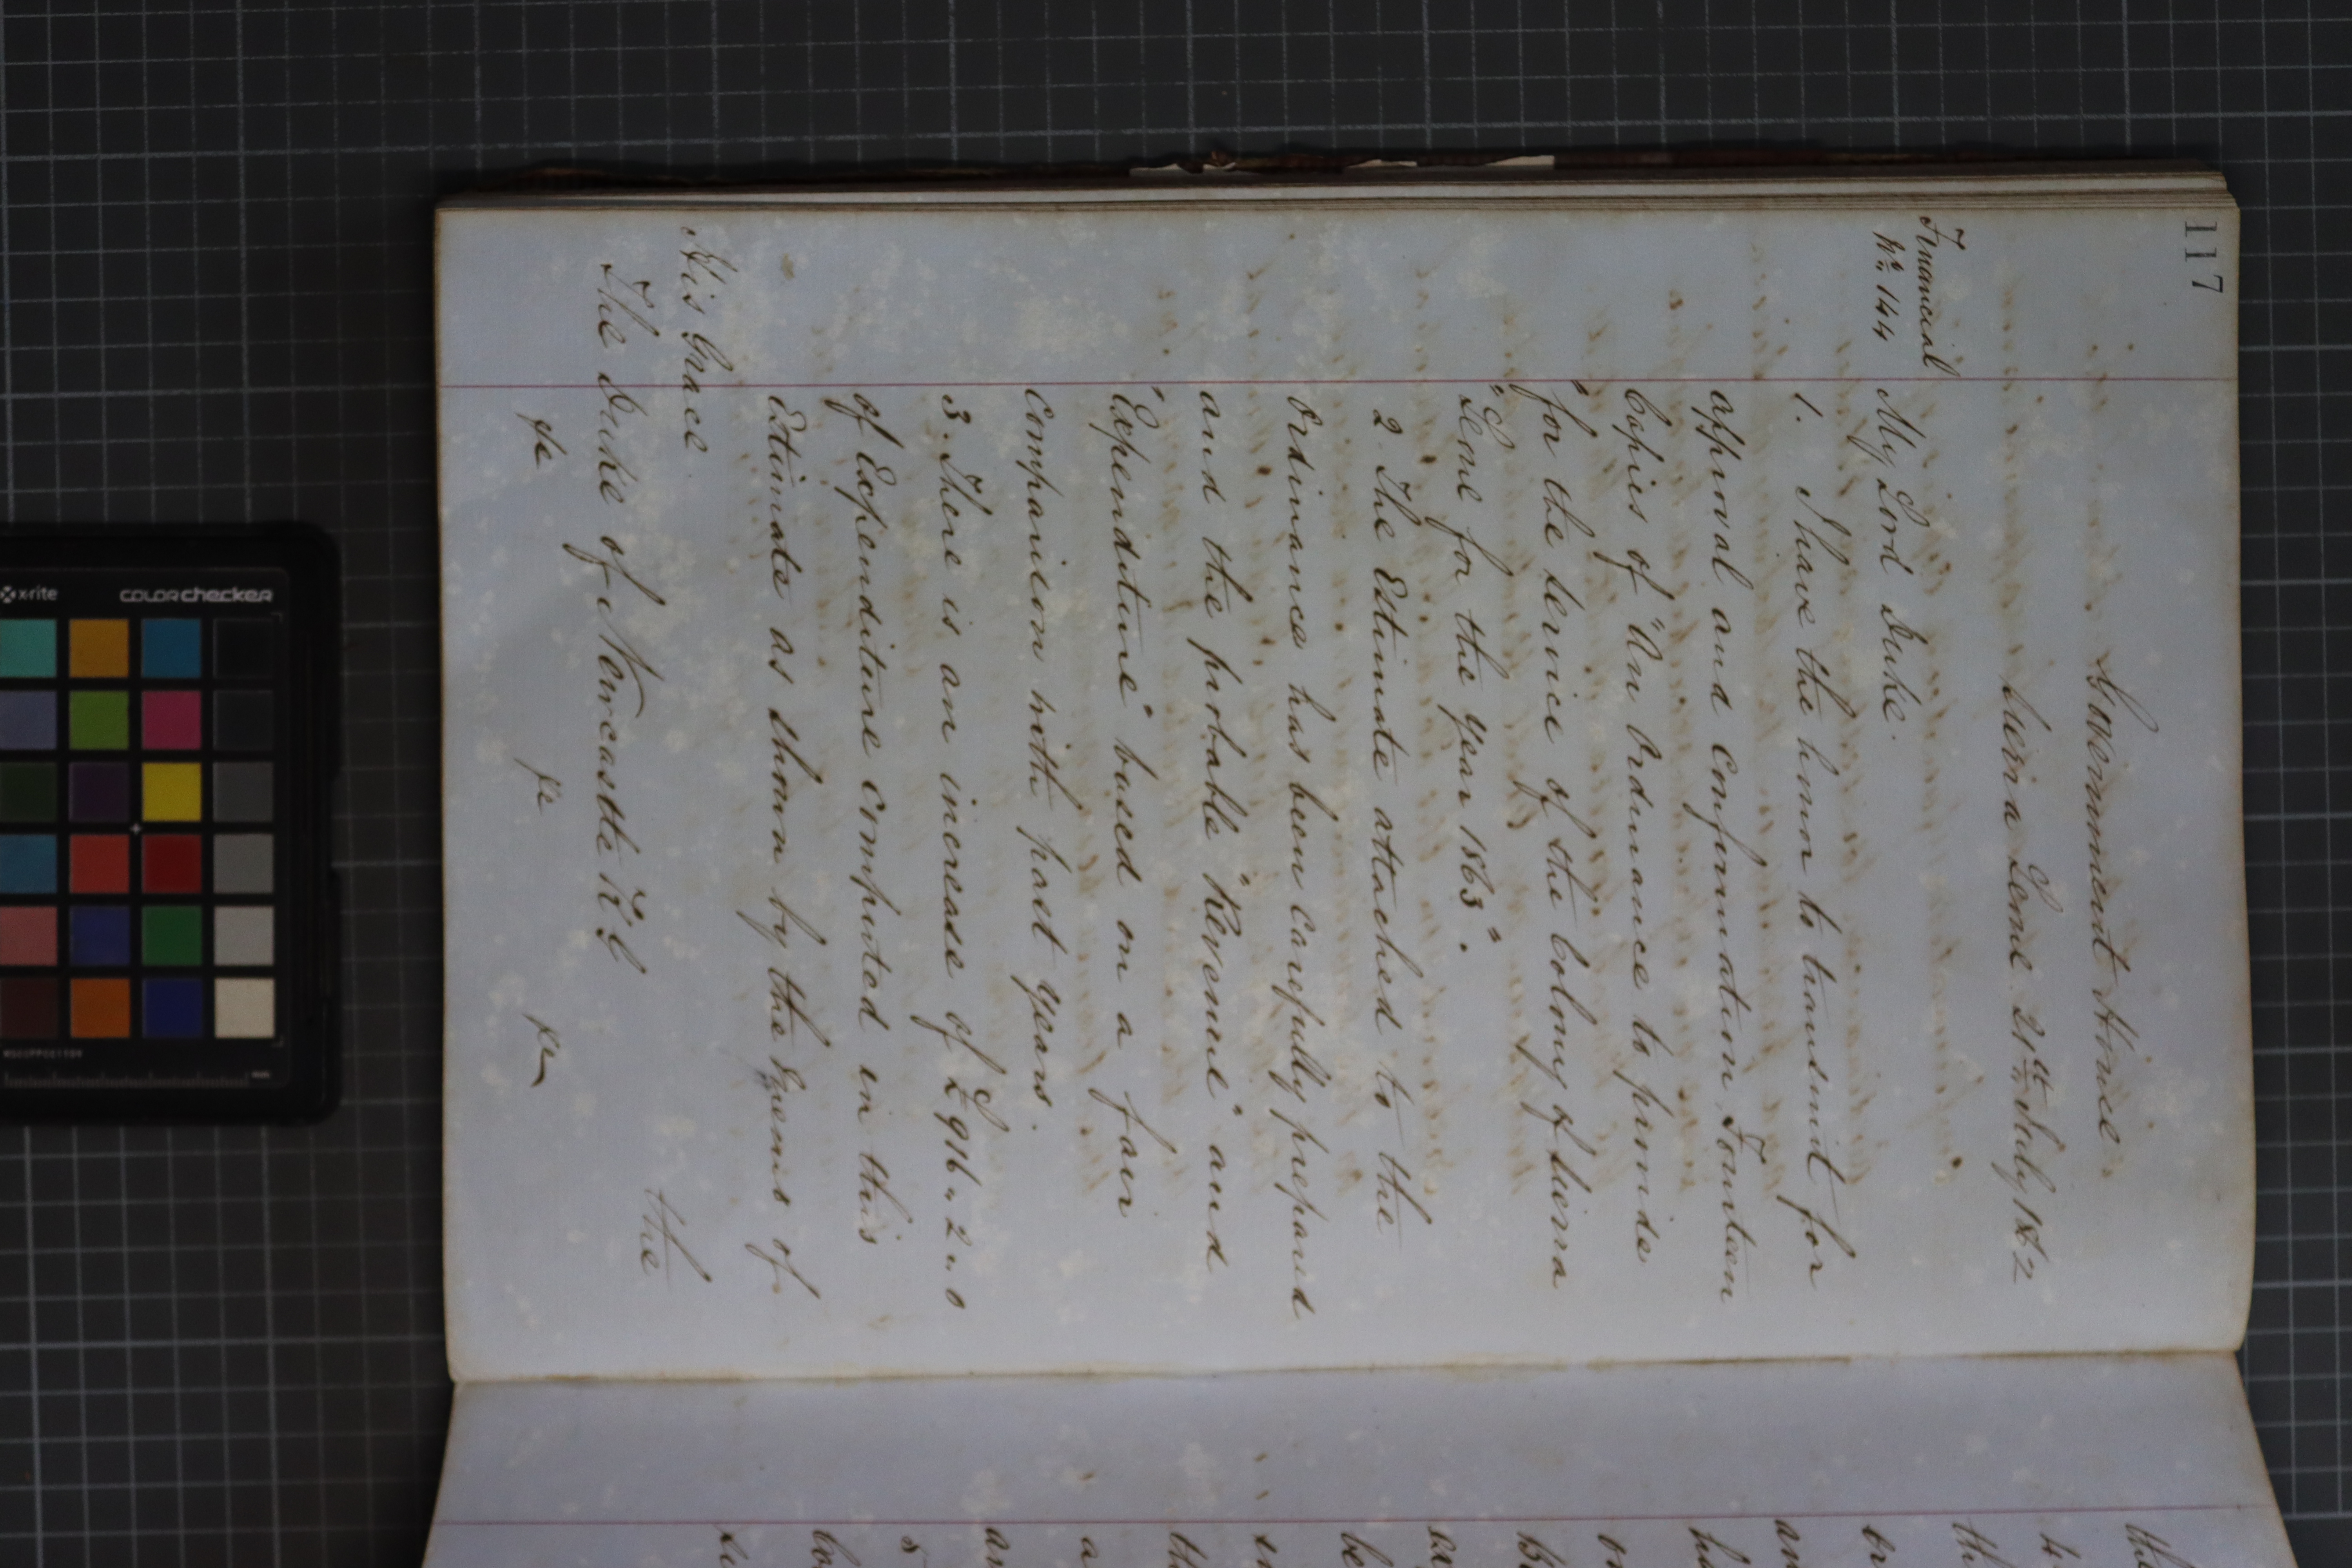 117
Government House
Sierra Leone 21st July 1862
Financial
No 144
My Lord Duke.
1. I have the honor to transmit for
approval and confirmation Fourteen
Copies of "An Ordinance to provide
"for the Service of the Colony of Sierra
"Leone for the year 1863".
2. The Estimate attached to the
Ordinance has been Carefully prepared
and the probable "Revenue" and
"Expenditure" based on a fair
comparison with past years.
3. There is an increase of £916.. 2.. 0
of Expenditure computed in this
Estimate as shown by the Excess of
the
His Grace
The Duke of Newcastle K.G
&c &c &c
x-rite colorchecker